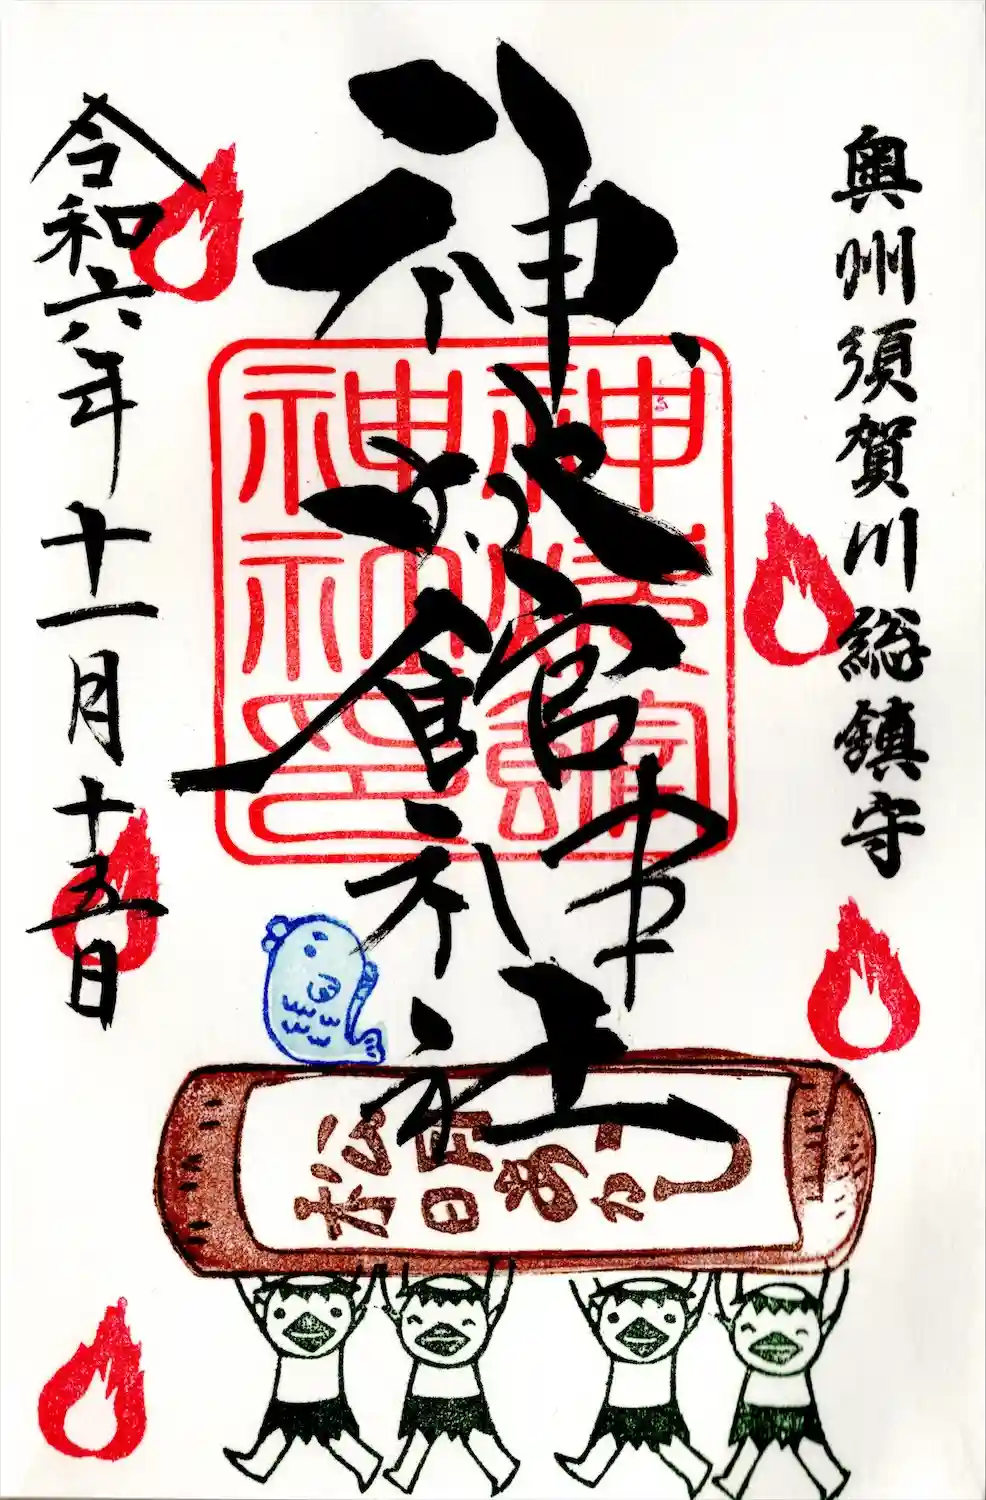 奥州須賀川総鎮守
神炊館神社
令和六年十一月十五日
神館
神社印
松明あかし